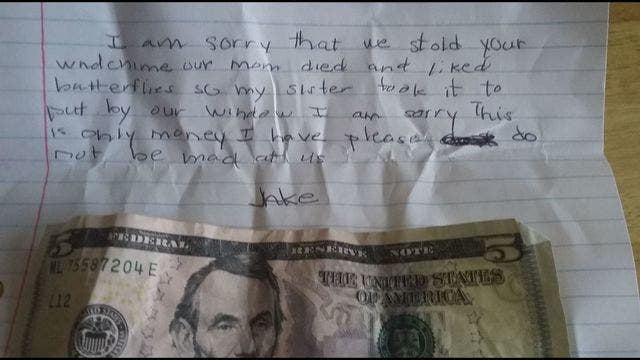 I am sorry that we stold your
wndchime our mom died and liked
butterflies so my sister took it to
put by our window I am sorry This
is only money I have please do
not be mad at us
Jake
5 FEDERAL RESERVE NOTE 5
75587204 E
THE UNITED STATES
OF AMERICA
L12